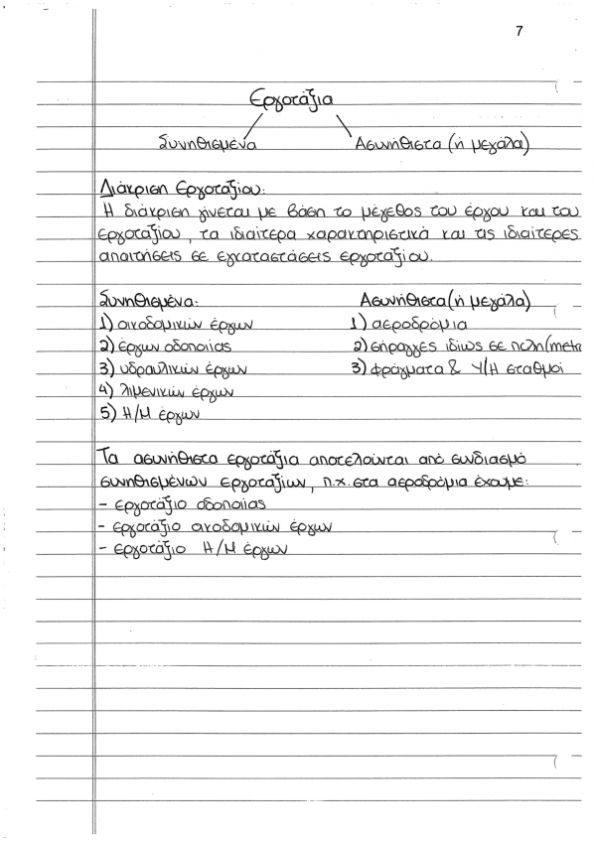 7
Εργοτάξια
Συνηθισμένα Ασυνήθιστα (ή μεγάλα)
Διάκριση Εργοταξίου:
Η διάκριση γίνεται με βάση το μέγεθος του έργου και του
εργοταξίου, τα ιδιαίτερα χαρακτηριστικά και τις ιδιαίτερες
απαιτήσεις σε εγκαταστάσεις εργοταξίου.
Συνηθισμένα: Ασυνήθιστα (ή μεγάλα)
1) οικοδομικών έργων 1) αεροδρόμια
2) έργων οδοποιίας 2) σήραγγες ιδίως σε πόλη (metro
3) υδραυλικών έργων 3) φράγματα & Υ/Η σταθμοί
4) λιμενικών έργων
5) Η/Μ έργων
Τα ασυνήθιστα εργοτάξια αποτελούνται από συνδιασμό
συνηθισμένων εργοταξίων, π.χ. στα αεροδρόμια έχουμε:
- εργοτάξιο οδοποιίας
- εργοτάξιο οικοδομικών έργων
- εργοτάξιο Η/Μ έργων